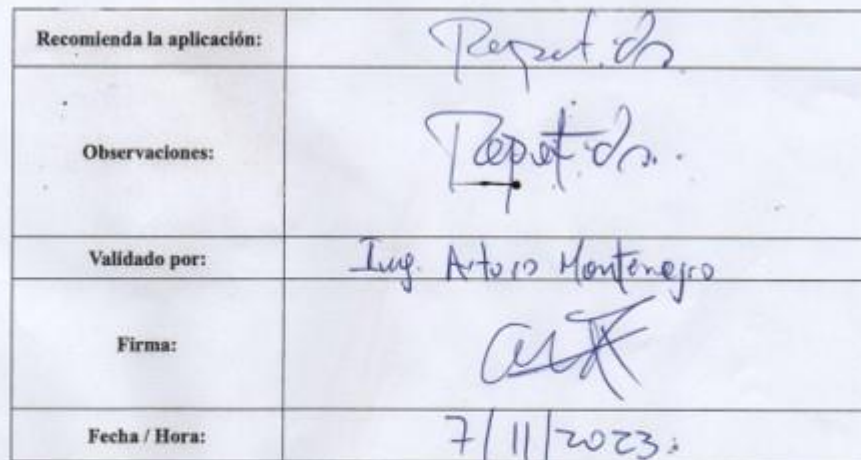 Recomienda la aplicación:
Observaciones:
Validado por: Ing. Arturo Montenegro
Firma:
Fecha / Hora: 7/11/2023.